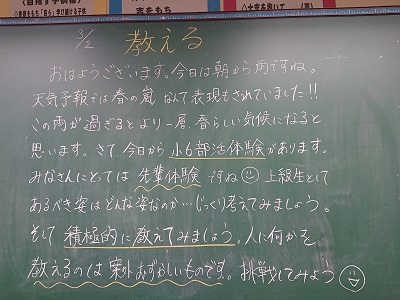 3/2 教える
おはようございます。今日は朝から雨ですね。
天気予報では春の嵐なんて表現もされていました!!
この雨が過ぎるとより一層、春らしい気候になると
思います。さて、今日から小6部活体験があります。
みなさんにとっては先輩体験ですね 上級生として
あるべき姿はどんな姿なのか…じっくり考えてみましょう。
そして積極的に教えてみましょう。人に何かを
教えるのは案外むずかしいものです。挑戦してみよう